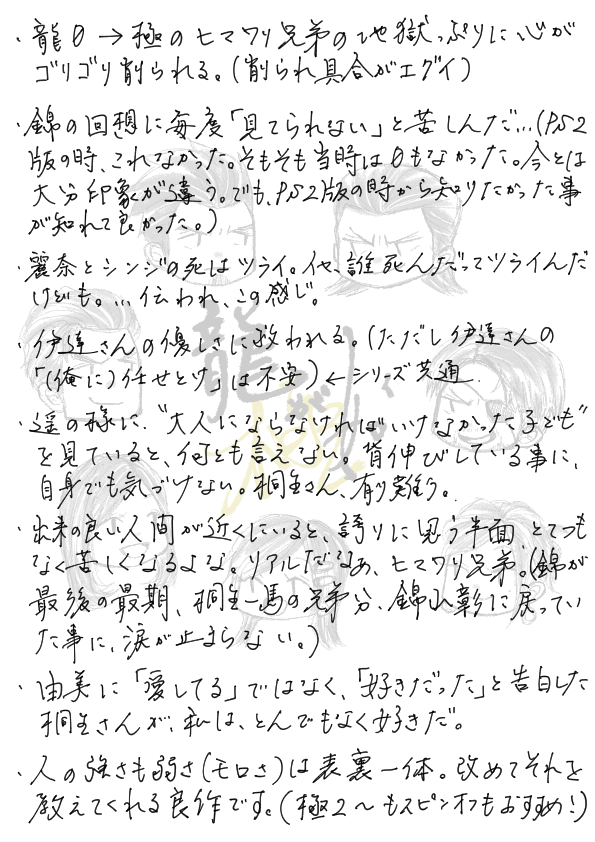 ・龍0→極のヒマワリ兄弟の地獄っぷりに心が
ゴリゴリ削られる。(削られ具合がエグイ)
・錦の回想に毎度「見てられない」と苦しんだ…(PS2
版の時、これなかった。そもそも当時は0もなかった。今とは
大分印象が違う。でも、PS2版の時から知りたかった事
が知れて良かった。)
・麗奈とシンジの死はツライ。イヤ、誰死んだってツライんだ
けども。…伝われ、この感じ。
・伊達さんの優しさに救われる。(ただし伊達さんの
「(俺に)任せとけ」は不安)←シリーズ共通
・遥の様に、“大人にならなければいけなかった子ども”
を見ていると、何とも言えない。背伸びしている事に、
自身でも気づけない。桐生さん、有り難う。
・出来の良い人間が近くにいると、誇りに思う半面、とてつも
なく苦しくなるよな。リアルだなぁ、ヒマワリ兄弟。(錦が
最後の最期、桐生一馬の兄弟分、錦山彰に戻ってい
た事に、涙が止まらない。)
・由美に「愛してる」ではなく、「好きだった」と告白した
桐生さんが、私は、とんでもなく好きだ。
・人の強さも弱さ(モロさ)は表裏一体。改めてそれを
教えてくれる良作です。(極2〜もスピンオフもおすすめ!)
龍が如く